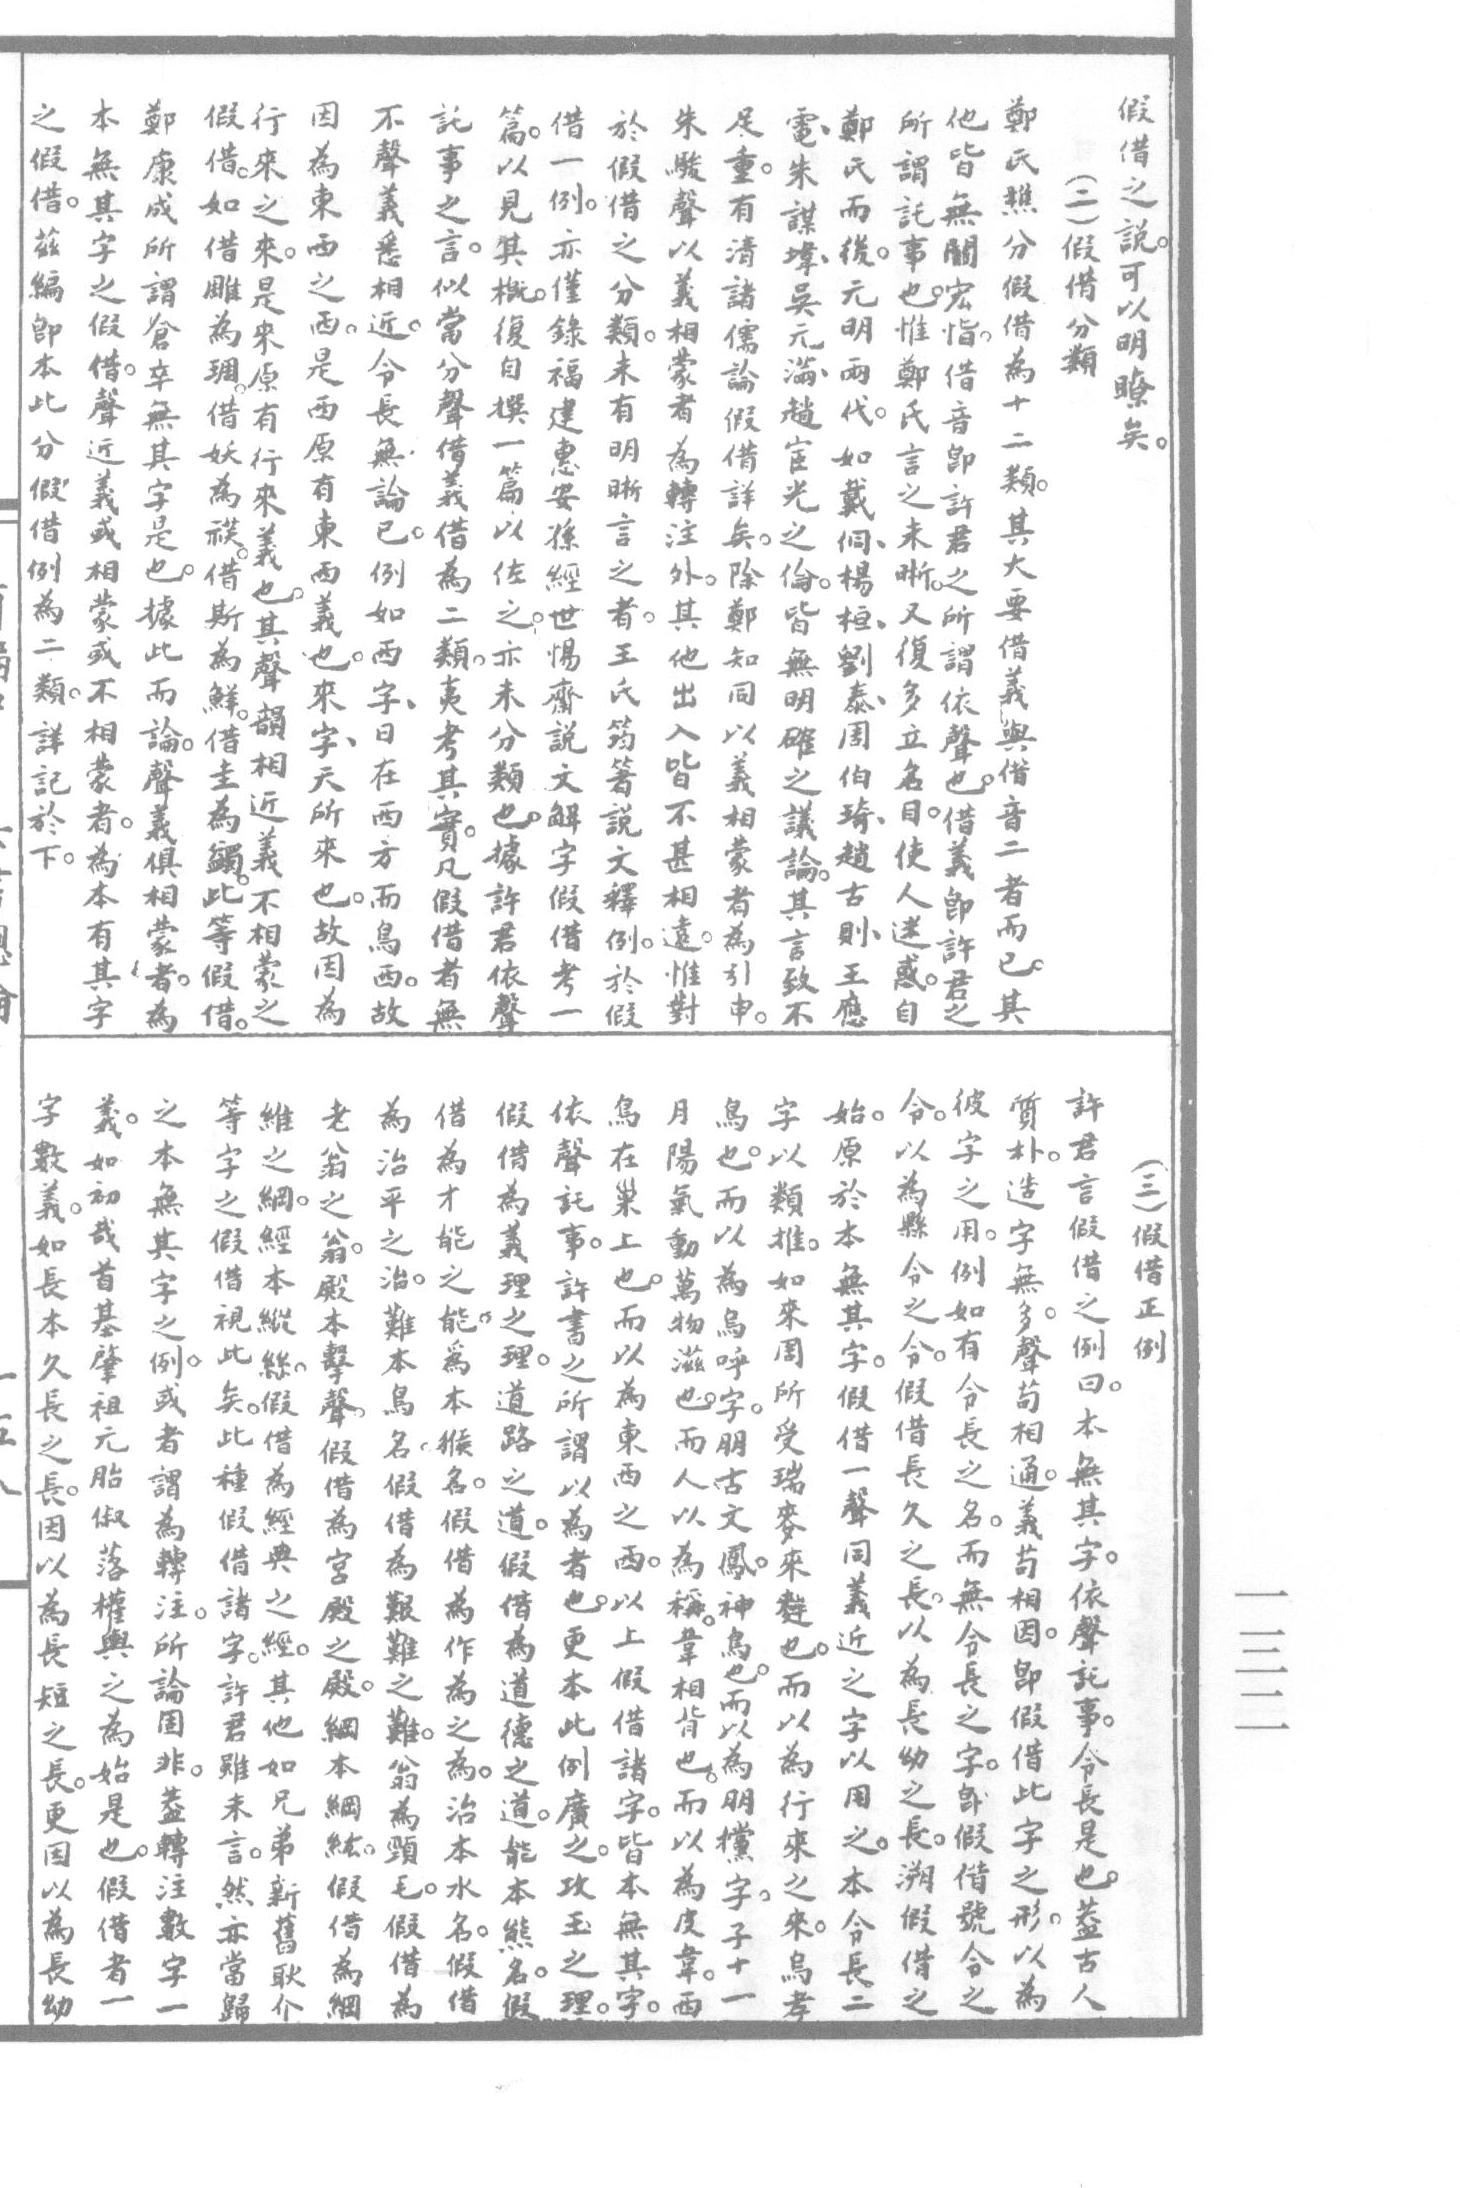 假借之說。可以明瞭矣。
(二)假借分類
鄭氏樵分假借為十二類。其大要借義與借音二者而已。其
他皆無關宏恉。借音即許君之所謂依聲也。借義即許君之
所謂託事也。惟鄭氏言之未晰。又復多立名目。使人迷惑。自
鄭氏而後。元明兩代。如戴侗、楊桓、劉泰、周伯琦、趙古則、王應
電、朱謀㙔、吳元滿、趙宧光之倫。皆無明確之議論。其言致不
足重。有清諸儒論假借詳矣。除鄭知同以義相蒙者為引申。
朱駿聲以義相蒙者為轉注外。其他出入皆不甚相遠。惟對
於假借之分類。未有明晰言之者。王氏筠箸說文釋例。於假
借一例。亦僅錄福建惠安孫經世惕齋說文解字假借考一
篇。以見其概。復自撰一篇以佐之。亦未分類也。據許君依聲
託事之言。似當分聲借義借為二類。夷考其實。凡假借者無
不聲義悉相近。令長無論已。例如西字、日在西方而鳥西。故
因為東西之西。是西原有東西義也。來字、天所來也。故因為
行來之來。是來原有行來義也。其聲韻相近義不相蒙之
假借。如借雕為琱。借妖為祅。借斯為鮮。借圭為蠲。此等假借。
鄭康成所謂倉卒無其字是也。據此而論。聲義俱相蒙者。為
本無其字之假借。聲近義或相蒙或不相蒙者。為本有其字
之假借。茲編即本此分假借例為二類。詳記於下。
(三)假借正例
許君言假借之例曰。本無其字。依聲託事。令長是也。蓋古人
質朴。造字無多。聲苟相通。義苟相因。即假借此字之形。以為
彼字之用。例如有令長之名。而無令長之字。即假借號令之
令。以為縣令之令。假借長久之長。以為長幼之長。溯假借之
始。原於本無其字。假借一聲同義近之字以用之。本令長二
字以類推。如來周所受瑞麥來麰也。而以為行來之來。烏孝
鳥也。而以為烏呼字。朋古文鳳。神鳥也。而以為朋攩字。子十一
月陽氣動萬物滋也。而人以為稱。韋相背也。而以為皮韋。西
鳥在巢上也。而以為東西之西。以上假借諸字。皆本無其字。
依聲託事。許書之所謂以為者也。更本此例廣之。攻玉之理。
假借為義理之理。道路之道。假借為道德之道。能本熊名。假
借為才能之能。爲本猴名。假借為作為之為。治本水名。假借
為治平之治。難本鳥名。假借為艱難之難。翁為頸毛。假借為
老翁之翁。殿本擊聲。假借為宮殿之殿。綱本綱紘。假借為綱
維之綱。經本縱絲。假借為經典之經。其他如兄弟新舊耿介
等字之假借視此矣。此種假借諸字。許君雖未言。然亦當歸
之本無其字之例。或者謂為轉注。所論固非。蓋轉注數字一
義。如初哉首基肇祖元胎俶落權輿之為始是也。假借者一
字數義。如長本久長之長。因以為長短之長。更因以為長幼
一三二